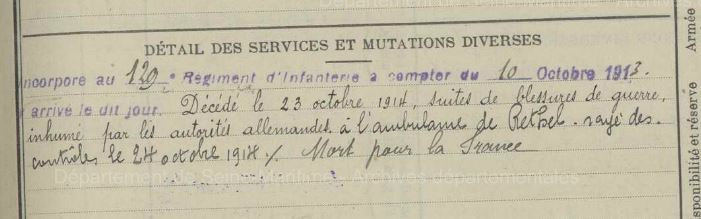 DÉTAIL DES SERVICES ET MUTATIONS DIVERSES
Incorporé au 129e Régiment d'Infanterie à compter du 10 Octobre 1913.
arrivé le dit jour. Décédé le 23 octobre 1914, suites de blessures de guerre,
inhumé par les autorités allemandes à l'ambulance de Rethel. rayé des
contrôles le 24 octobre 1914 /. Mort pour la France
Département de Seine-Maritime, Archives départementales
Armée
sponibilité et réserve